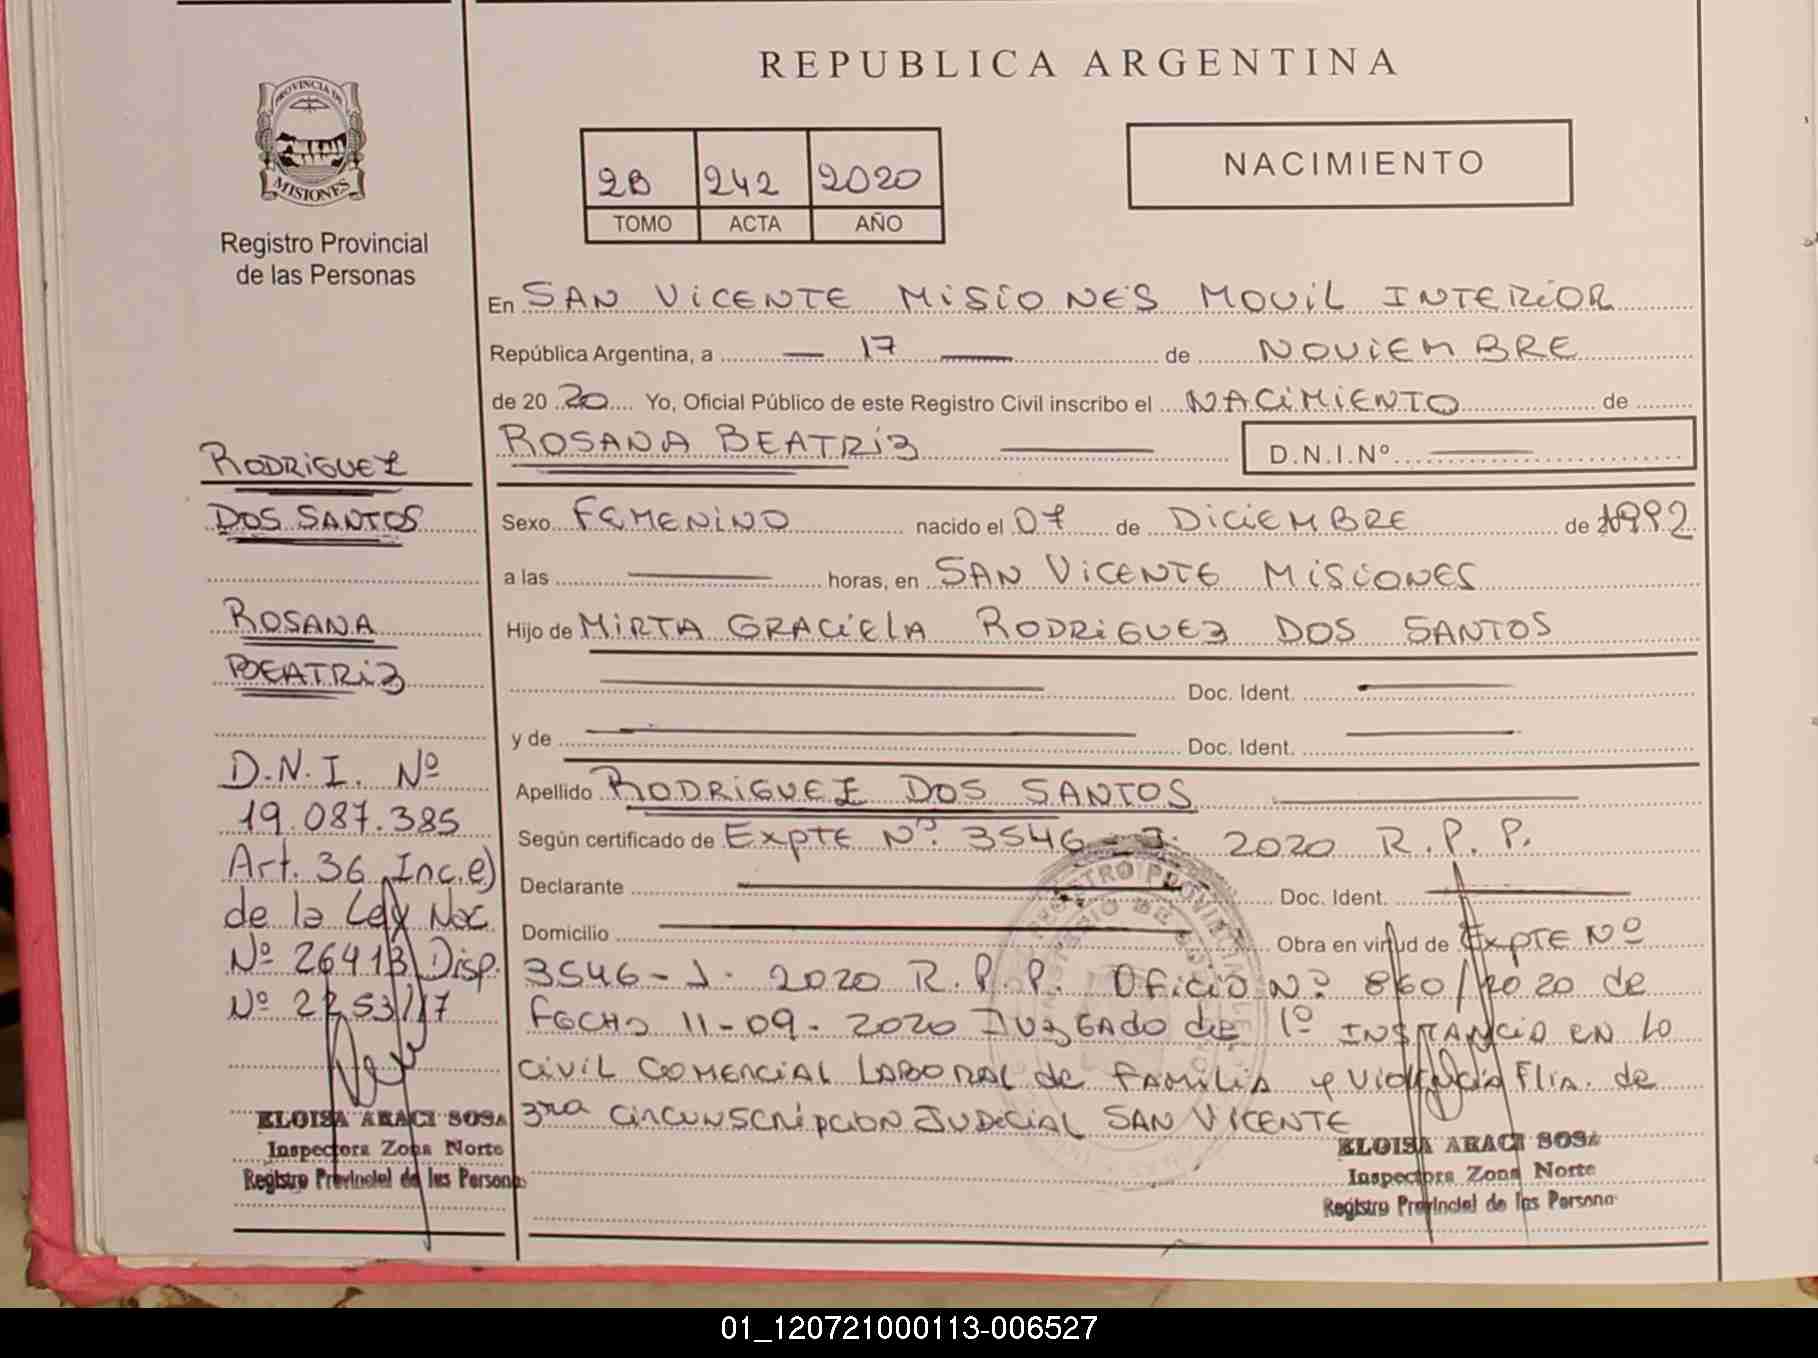 REPUBLICA ARGENTINA
PROVINCIA DE
MISIONES
Registro Provincial
de las Personas
2B 242 2020
TOMO ACTA AÑO
NACIMIENTO
En SAN VICENTE MISIONES MOVIL INTERIOR
República Argentina, a 17 de NOVIEMBRE
de 20 20 Yo, Oficial Público de este Registro Civil inscribo el NACIMIENTO de
ROSANA BEATRIZ D.N.I.Nº
Sexo FEMENINO nacido el 07 de DICIEMBRE de 1992
a las horas, en SAN VICENTE MISIONES
Hijo de MIRTA GRACIELA RODRIGUEZ DOS SANTOS
Doc. Ident.
y de Doc. Ident.
Apellido RODRIGUEZ DOS SANTOS
Según certificado de EXPTE Nº 3546-J. 2020 R.P.P.
Declarante Doc. Ident.
Domicilio Obra en virtud de EXPTE Nº
3546-J. 2020 R.P.P. OFICIO Nº 860/2020 de
FECHA 11-09-2020 JUZGADO de 1º INSTANCIA EN LO
CIVIL COMERCIAL LABORAL de FAMILIA Y VIOLENCIA FLIA. de
3ra CIRCUNSCRIPCION JUDICIAL SAN VICENTE
ELOISA ARACI SOSA
Inspectora Zona Norte
Registro Provincial de las Persona
RODRIGUEZ
DOS SANTOS
ROSANA
BEATRIZ
D.N.I. Nº
19.087.385
Art. 36 Inc.e)
de la Ley Nac
Nº 26413 Disp.
Nº 2253/17
ELOISA ARACI SOSA
Inspectora Zona Norte
Registro Provincial de las Persona
REGISTRO PROVINCIAL
MINISTERIO DE
01_120721000113-006527